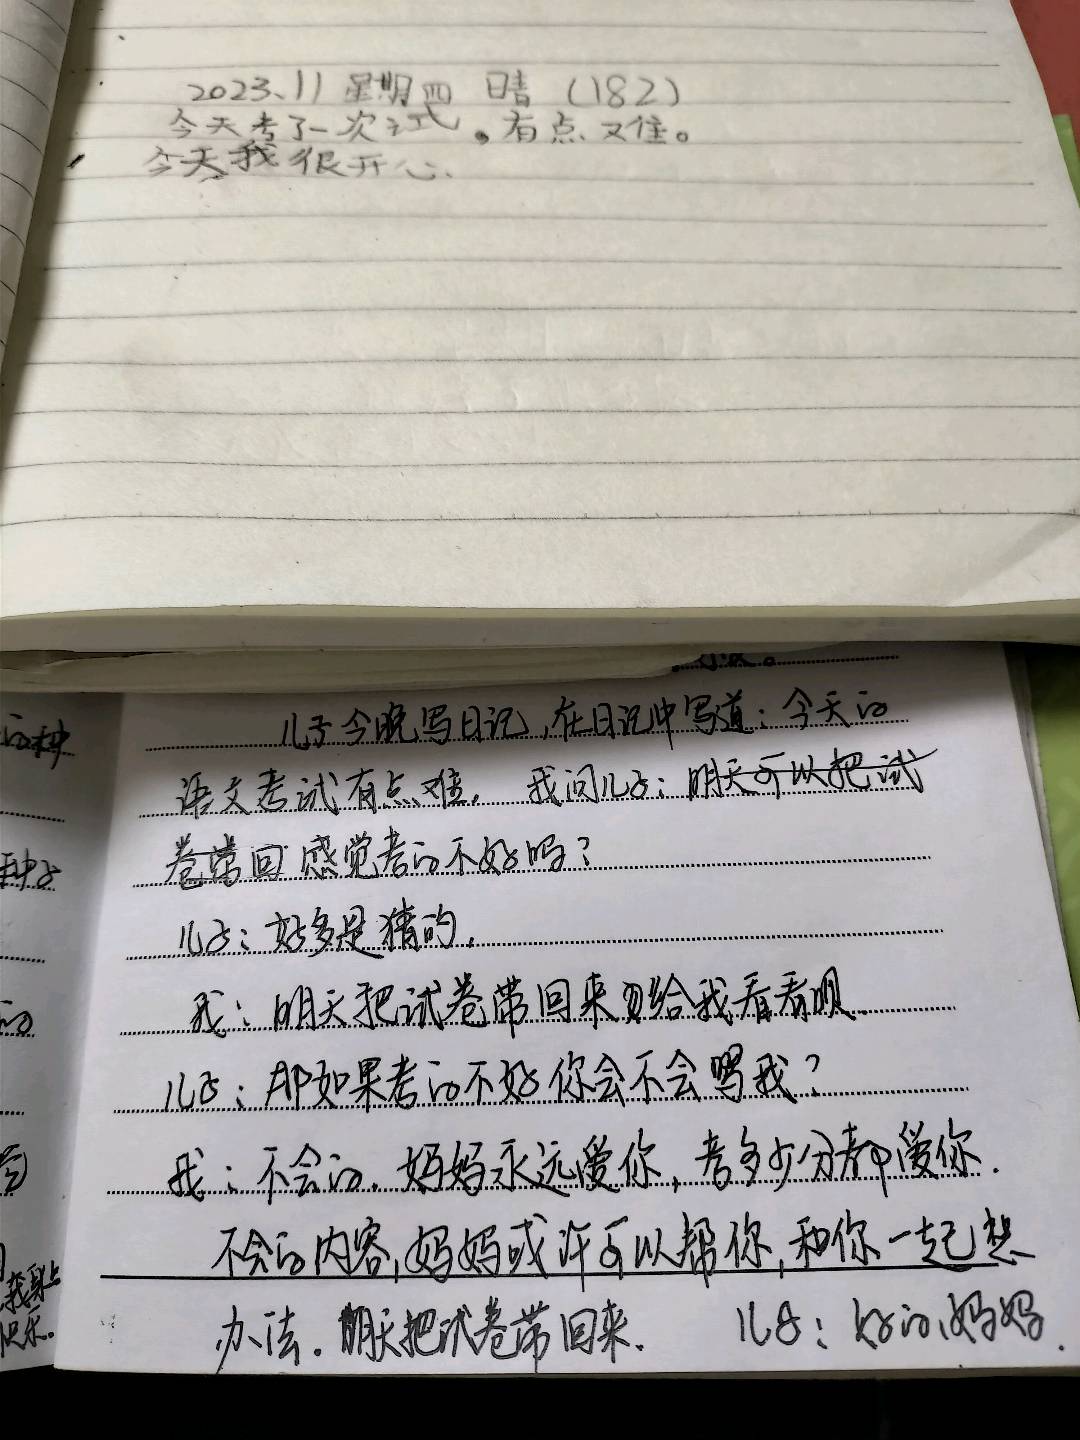 2023.11 星期四 晴 (182)
今天考了一次试。有点难。
今天我很开心.
儿子今晚写日记,在日记中写道:今天的
语文考试有点难. 我问儿子:明天可以把试
卷带回感觉考的不好吗?
儿子:好多是猜的.
我:明天把试卷带回来给我看看呗.
儿子:那如果考的不好你会不会骂我?
我:不会的.妈妈永远爱你,考多少分都爱你.
不会的内容,妈妈或许可以帮你,和你一起想
办法.明天把试卷带回来. 儿子:好的,妈妈.
的种
我身上
快乐。